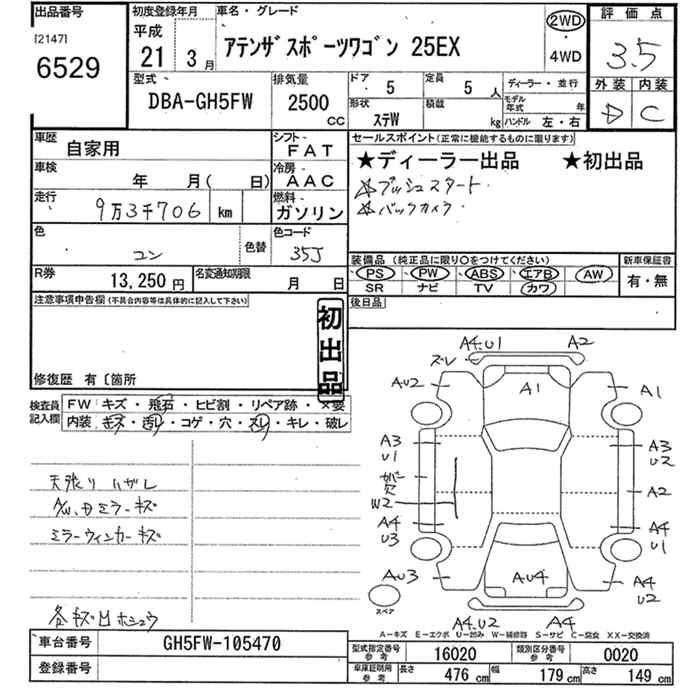 出品番号
[2147]
6529
初度登録年月
平成
21 3月
車名・グレード
アテンザスポーツワゴン 25EX
2WD
4WD
評価点
3.5
外装 内装
D C
型式
DBA-GH5FW
排気量
2500
CC
ドア 5
定員 5 人
ディーラー・並行
形状 ステW
積載 kg
モデル年式 年
ハンドル 左・右
車歴
自家用
シフト
FAT
車検 年 月( 日)
冷房
AAC
走行
9万3千706 km
燃料
ガソリン
色
コン
色替
色コード
35J
R券
13,250円
名変通知期限
月 日
セールスポイント(正常に機能するものに限ります)
★ディーラー出品 ★初出品
☆プッシュスタート
☆バックカメラ
装備品 (純正品に限り○をつけてください)
PS PW ABS エアB AW
SR ナビ TV カワ
新車保証書
有・無
後日品
注意事項申告欄(不具合内容等は具体的に記入して下さい)
初出品
修復歴 有〔箇所
検査員記入欄
FW キズ・飛石・ヒビ割・リペア跡・×要
内装 キズ・汚り・コゲ・穴・スリ・キレ・破レ
天張りハガレ
ミラーウィンカーキズ
A4.U1
ズレ
A2
AU2
A1
A1
A3
U1
A3
U2
W2
A2
A4
U3
A4
U1
AU3
AU4
A4
U2
スペア
A4.U2
A4
A-キズ E-エクボ U-凹み W-補修跡 S-サビ C-腐食 XX-交換済
車台番号
GH5FW-105470
登録番号
型式指定番号
参考
16020
類別区分番号
参考
0020
車庫証明用
参考
長さ 476 cm
幅 179 cm
高さ 149 cm